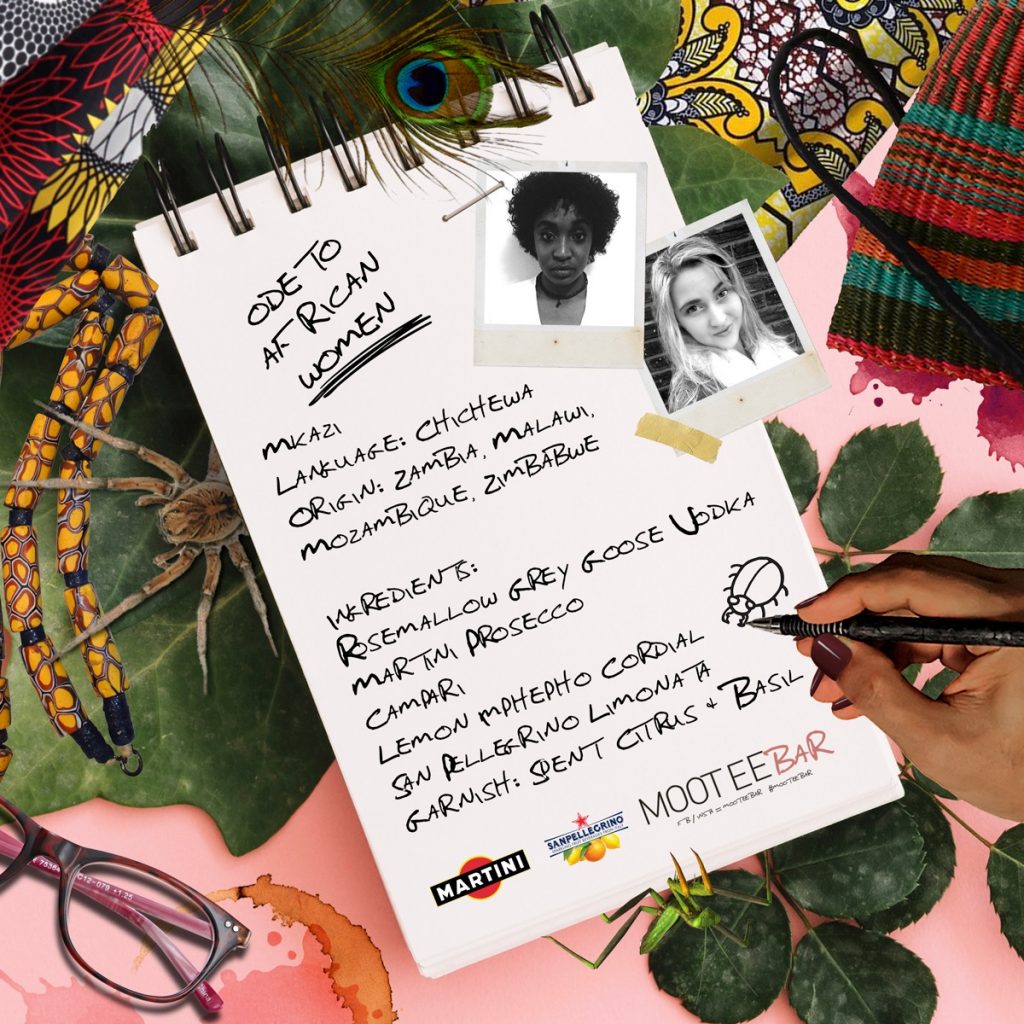 ODE TO
AFRICAN
WOMEN
MKAZI
LANGUAGE: CHICHEWA
ORIGIN: ZAMBIA, MALAWI,
MOZAMBIQUE, ZIMBABWE
INGREDIENTS:
ROSEMALLOW GREY GOOSE VODKA
MARTINI PROSECCO
CAMPARI
LEMON MPHEPHO CORDIAL
SAN PELLEGRINO LIMONATA
GARNISH: SPENT CITRUS + BASIL
MOOTEEBAR
@MOOTEEBAR
SANPELLEGRINO
MARTINI
C12-079 +1.25